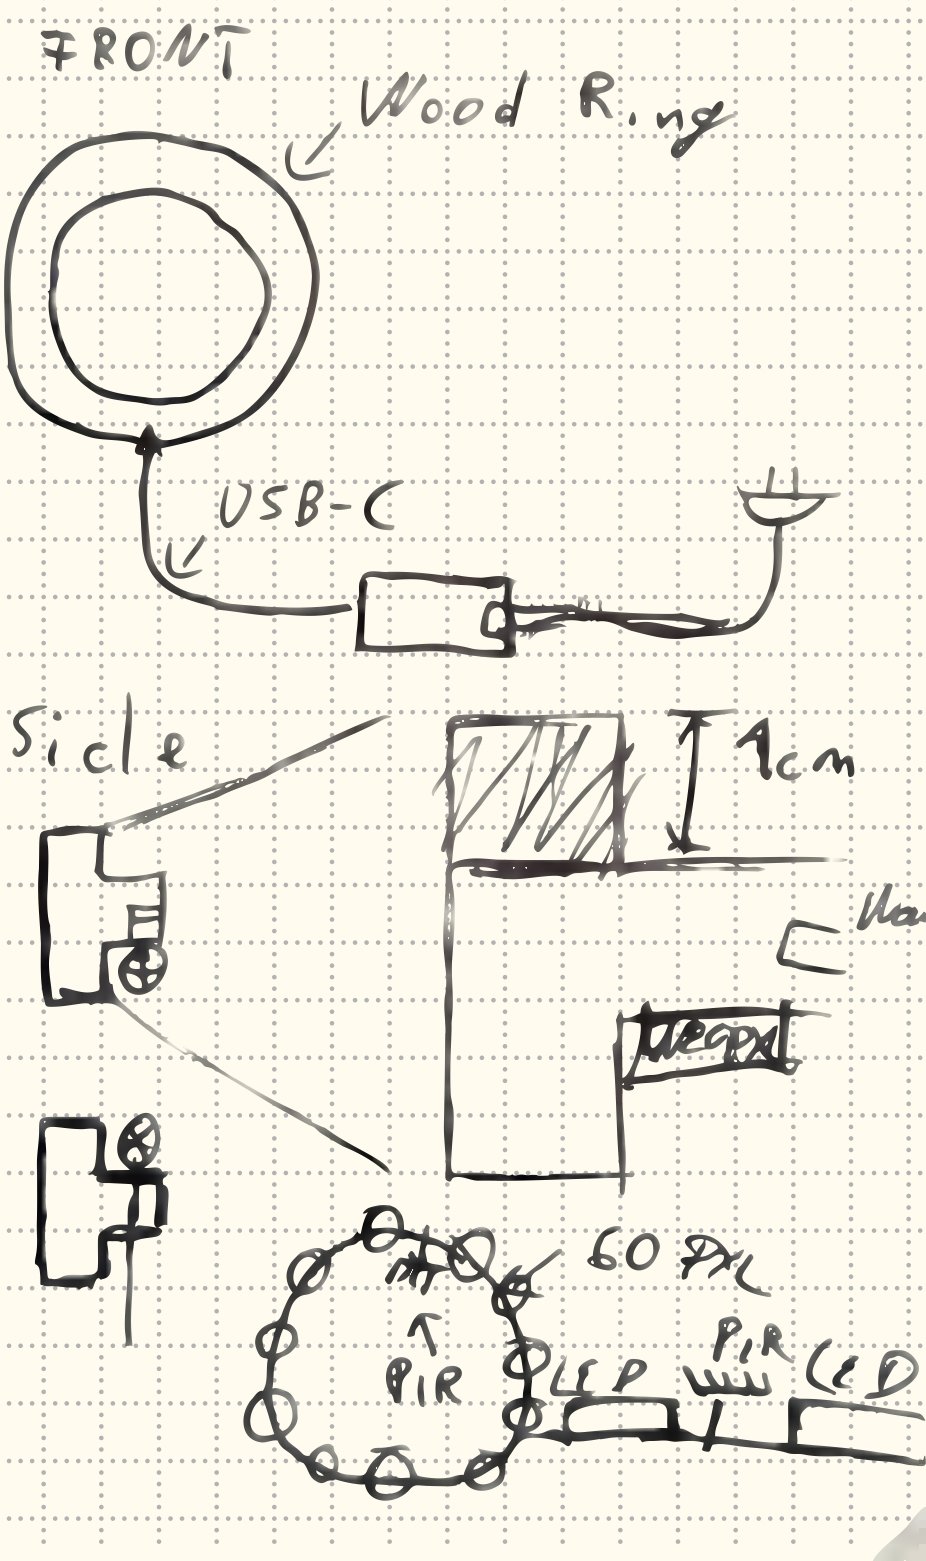 FRONT
Wood Ring
USB-C
Side
1cm
60 PXL
PIR
PIR
LED
LED